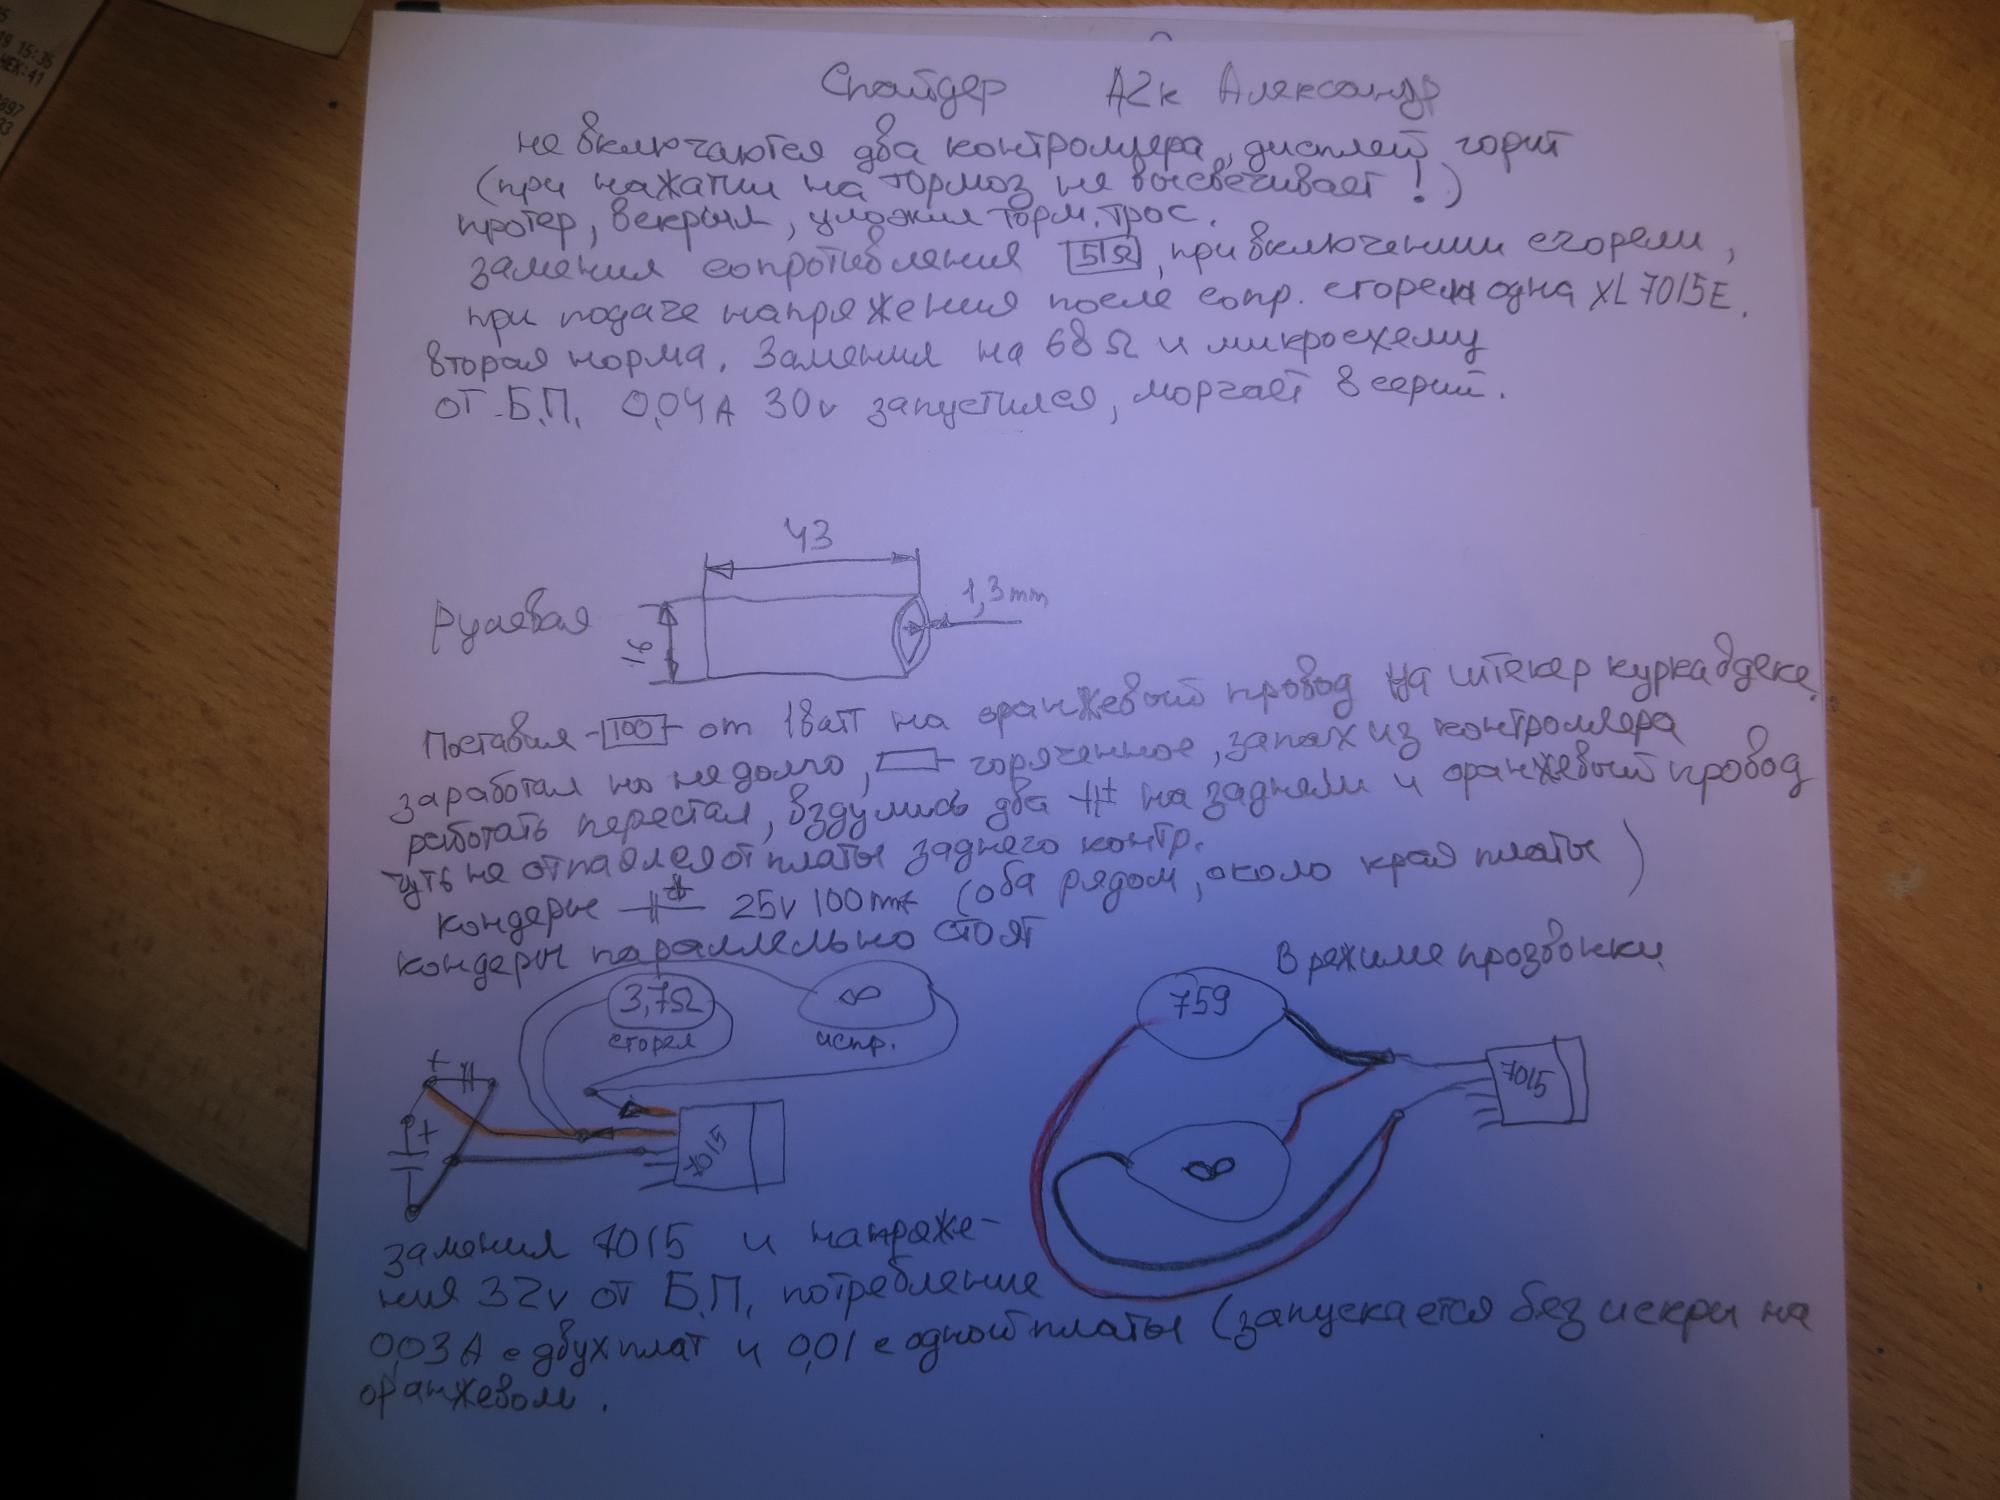 19 15:35
ЧЕК:41
897
Спайдер Д2к Александр
не включаются два контроллера, дисплей горит
(при нажатии на тормоз не высвечивает !)
протер, вскрыл, уложил торм. трос.
заменил сопротивления 51Ω, при включении сгорели,
при подаче напряжения после сопр. сгорела одна XL7015E.
вторая норма. Заменил на 68Ω и микросхему
от Б.П. 0,04А 30v запустился, моргает 8 серий.
43
1,3mm
Рулевая
16
Поставил 100 от 1ватт на оранжевый провод на штекер курка ддеке.
заработал но не долго, горяченное, запах из контроллера
работать перестал, вздулись два + на заднем и оранжевый провод
чуть не отпаялся от платы заднего контр.
кондеры + 25v 100mf (оба рядом, около края платы)
кондеры параллельно стоят
В режиме прозвонки
3,7Ω
∞
759
сгорел
испр.
+
7015
+
7015
∞
заменил 7015 и напряже-
ния 32v от Б.П. потребление
0,03А с двух плат и 0,01 с одной платы (запускается без искры на
оранжевом.